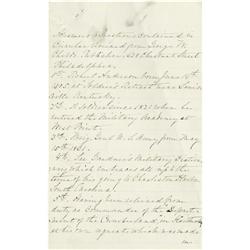 Answers to questions contained in
Circular received from George W.
Childs Publisher, 628 Chestnut Street
Philadelphia.
1st. Robert Anderson born June 14th
1805 at Soldiers Retreat near Louis
ville Kentucky.
2d. A Soldier since 1821 when he
entered the Military Academy at
West Point.
3d. Brig. Genl U.S. Army from May
15th 1861.
4th. See Gardner's Military Dictionary
which embraces all up to the
time of his going to Charleston Harbor
South Carolina.
5. Having been relieved from
duty as Commander of the Depart-
ment of the Cumberland in
at his own request which was made
in